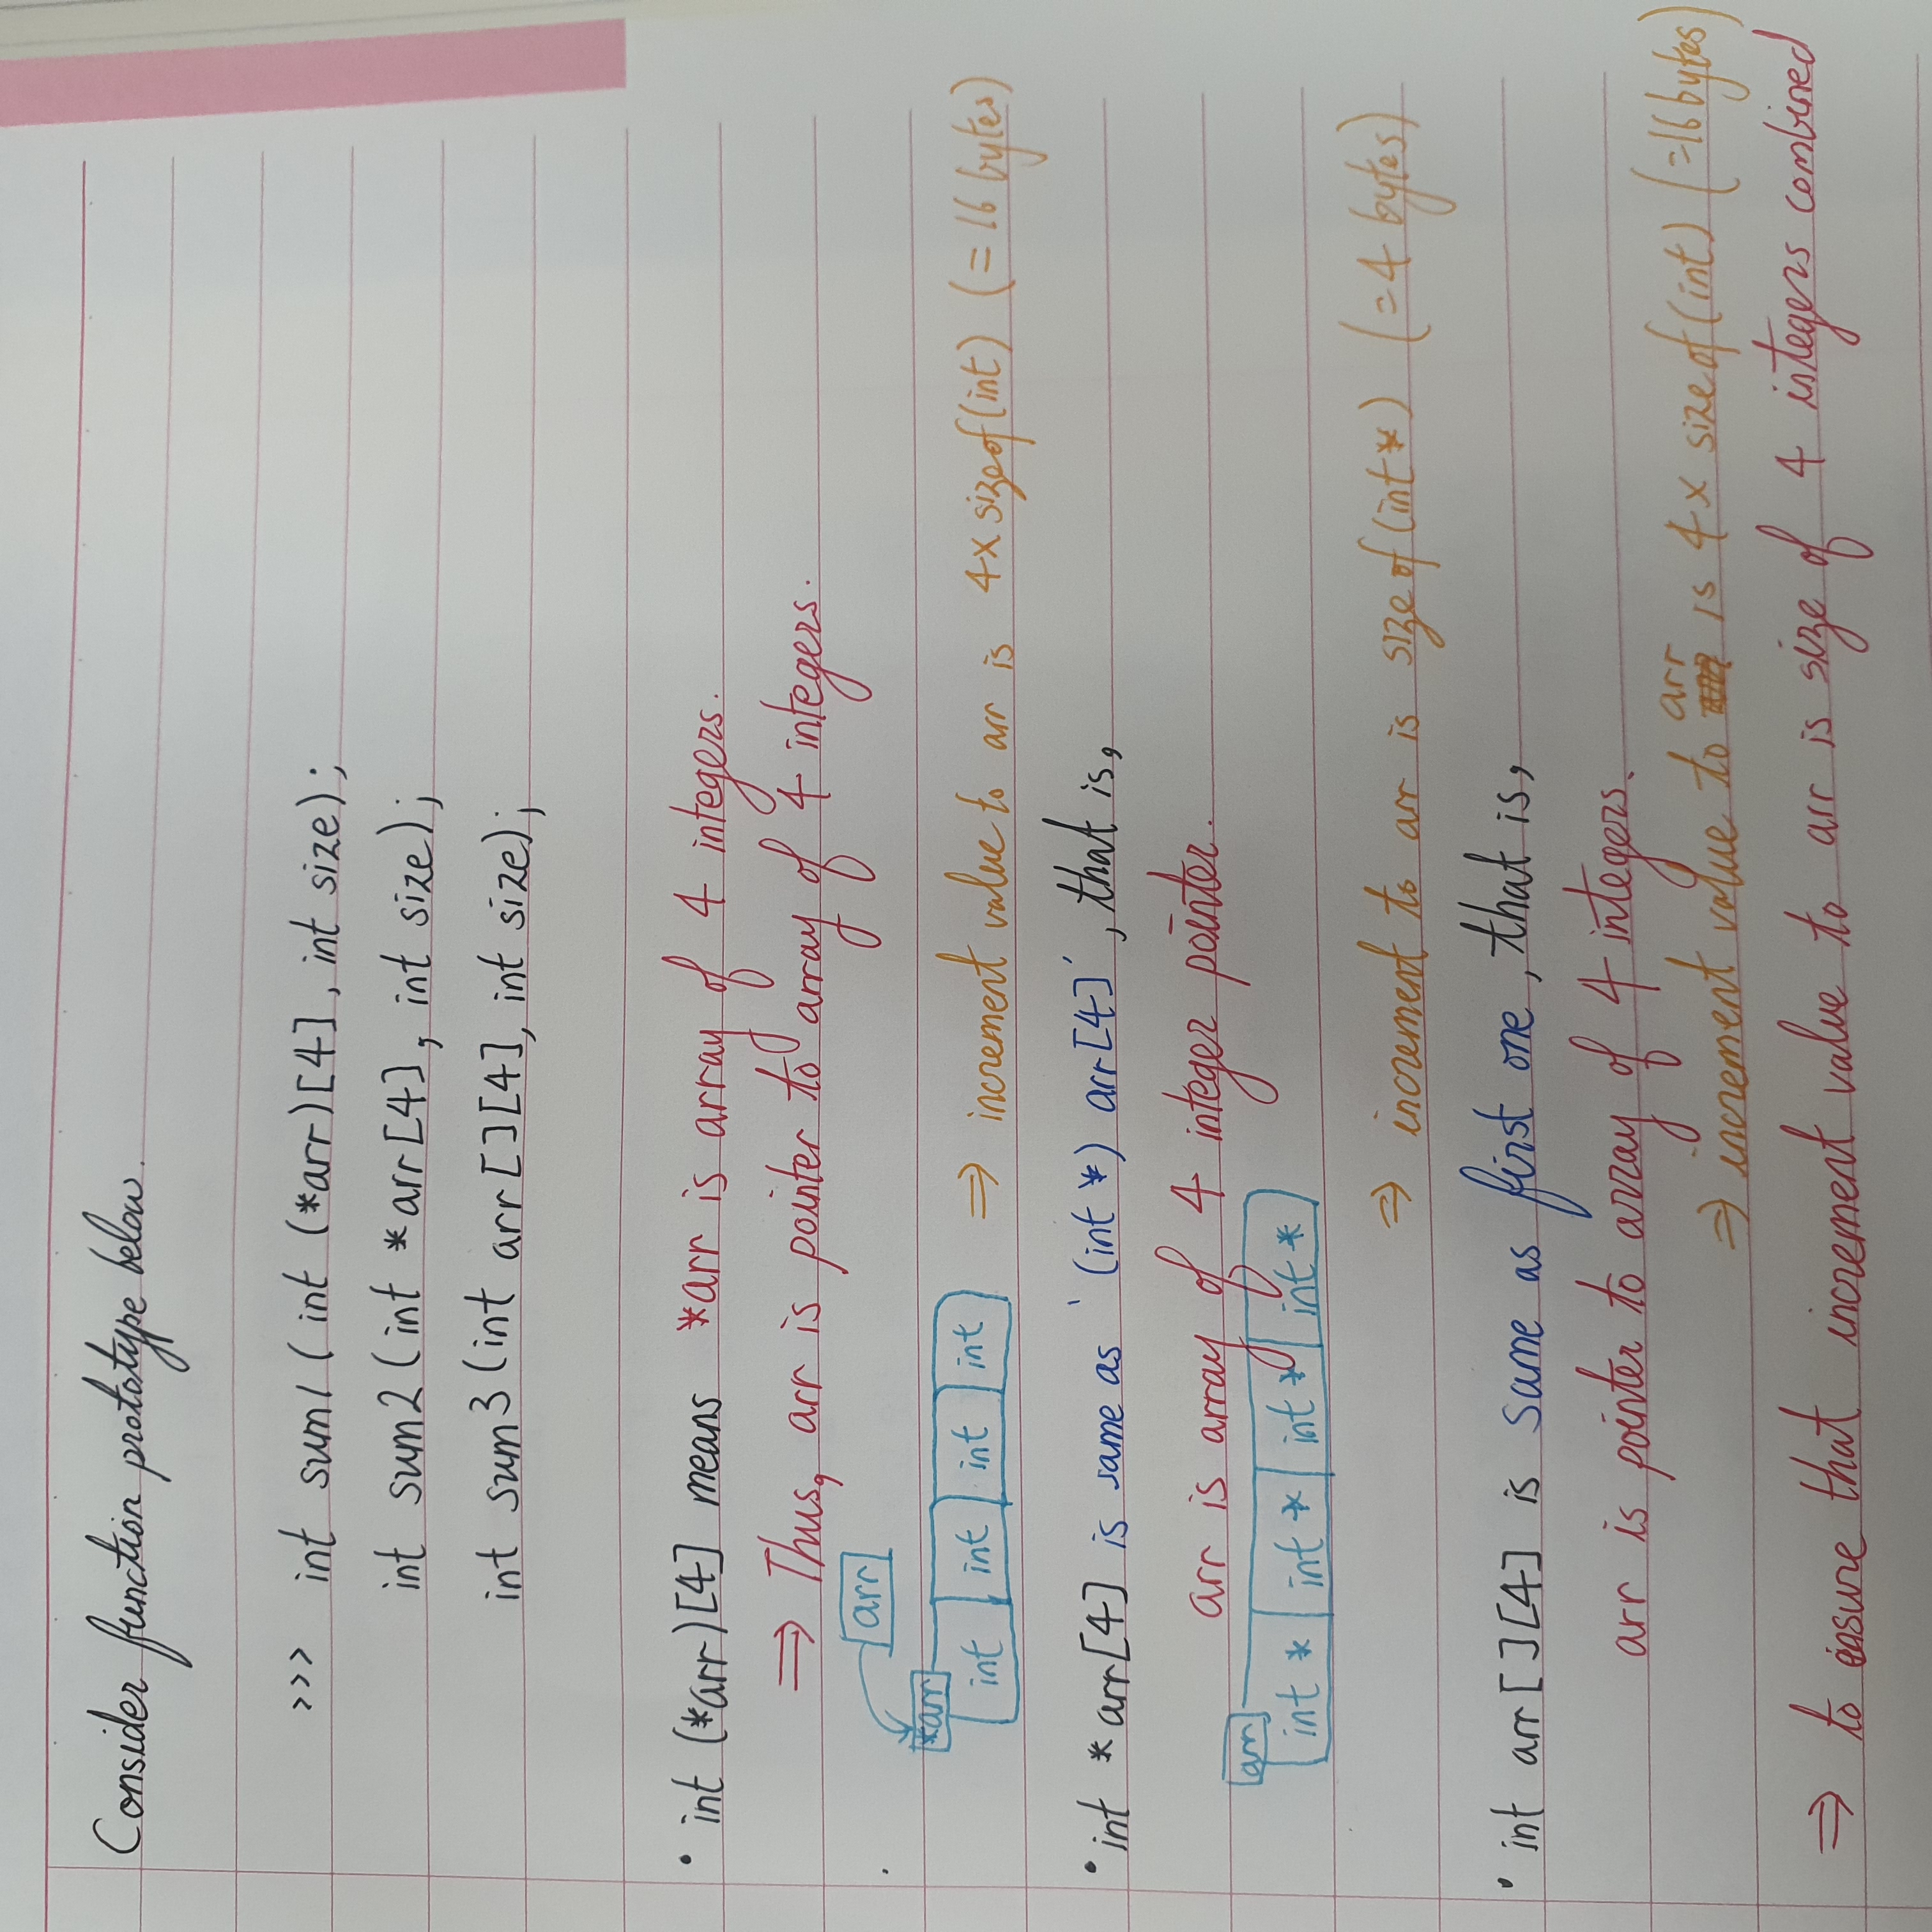 Consider function prototype below.
>>> int sum1 ( int (*arr)[4], int size);
int sum2 (int *arr[4], int size);
int sum3 (int arr[][4], int size);
• int (*arr)[4] means *arr is array of 4 integers.
⇒ Thus, arr is pointer to array of 4 integers.
arr
*arr
int int int int ⇒ increment value to arr is 4x sizeof(int) (=16 bytes)
• int *arr[4] is same as '(int *) arr[4]', that is,
arr is array of 4 integer pointer.
arr
int * int * int * int *
⇒ increment to arr is sizeof(int*) (=4 bytes)
• int arr[][4] is same as first one, that is,
arr is pointer to array of 4 integers.
⇒ increment value to arr is 4x sizeof(int) (=16 bytes)
⇒ to ensure that increment value to arr is size of 4 integers combined